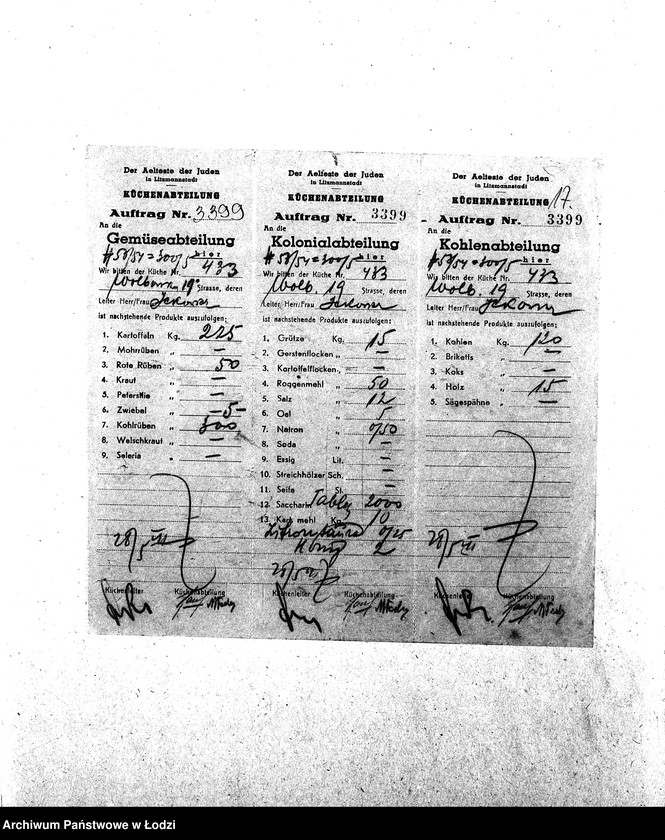 Der Aelteste der Juden
in Litzmannstadt
KÜCHENABTEILUNG
Auftrag Nr. 3399
An die
Gemüseabteilung
hier
Wir bitten der Küche Nr. 433
19 Strasse, deren
Leiter Herr/Frau
ist nachstehende Produkte auszufolgen:
1. Kartoffeln Kg. 225
2. Mohrrüben „ —
3. Rote Rüben „ 50
4. Kraut „ —
5. Petersilie „ —
6. Zwiebel „ —5—
7. Kohlrüben „ 300
8. Welschkraut „ —
9. Seleria „ —
28/5
Küchenleiter Küchenabteilung
Der Aelteste der Juden
in Litzmannstadt
KÜCHENABTEILUNG
Auftrag Nr. 3399
An die
Kolonialabteilung
hier
Wir bitten der Küche Nr. 433
Wolb. 19 Strasse, deren
Leiter Herr/Frau
ist nachstehende Produkte auszufolgen:
1. Grütze Kg. 15
2. Gerstenflocken „ —
3. Kartoffelflocken „ —
4. Roggenmehl „ 50
5. Salz „ 12
6. Oel „ 5
7. Natron „ 0/50
8. Soda „ —
9. Essig Lit. —
10. Streichhölzer Sch. —
11. Seife St. —
12. Saccharin Tabl. 2000
13. Kart. mehl Kg. 10
0/25
Honig 2
28/5
Küchenleiter Küchenabteilung
Der Aelteste der Juden
in Litzmannstadt
KÜCHENABTEILUNG 17.
Auftrag Nr. 3399
An die
Kohlenabteilung
hier
Wir bitten der Küche Nr. 433
Wolb. 19 Strasse, deren
Leiter Herr/Frau
ist nachstehende Produkte auszufolgen:
1. Kohlen Kg. 120
2. Briketts „ —
3. Koks „ —
4. Holz „ 15
5. Sägespähne „ —
28/5
Küchenleiter Küchenabteilung
Archiwum Państwowe w Łodzi